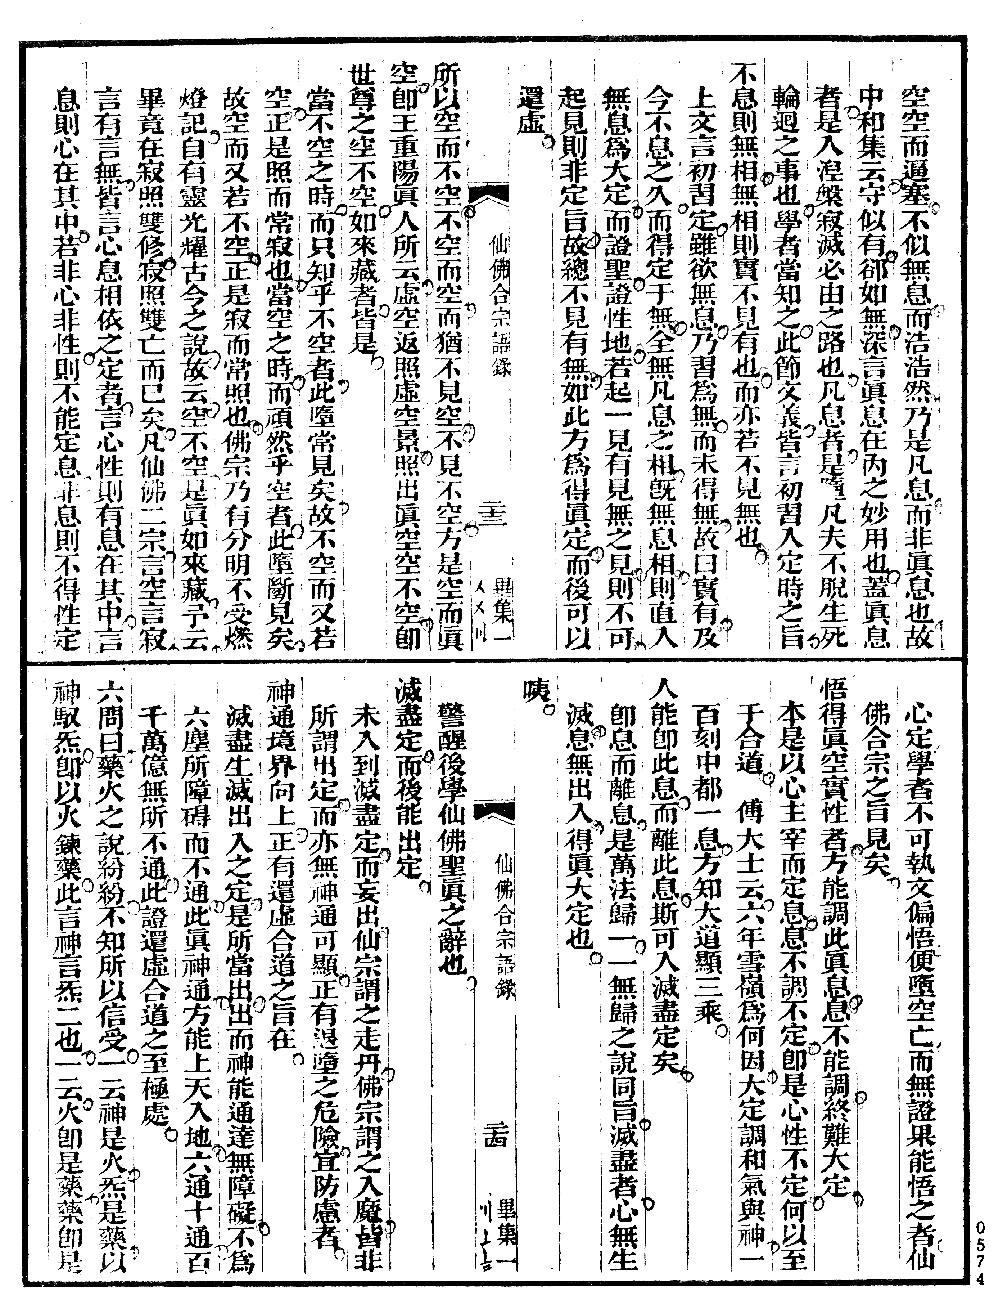 空空而逼塞不似無息而浩浩然乃是凡息而非眞息也故
中和集云守似有卻如無深言眞息在內之妙用也蓋眞息
者是入湼槃寂滅必由之路也凡息者是墮凡夫不脫生死
輪迴之事也學者當知之此節文義皆言初習入定時之旨
不息則無相無相則實不見有也而亦若不見無也
上文言初習定雖欲無息乃習爲無而未得無故曰實有及
今不息之久而得定于無全無凡息之相旣無息相則直入
無息爲大定而證聖證性地若起一見有見無之見則不可
起見則非定旨故總不見有無如此方爲得眞定而後可以
還虛
仙佛合宗語錄
三
畢集一
所以空而不空不空而空而猶不見空不見不空方是空而眞
空卽王重陽眞人所云虛空返照虛空景照出眞空空不空卽
世尊之空不空如來藏者皆是
當不空之時而只知乎不空者此墮常見矣故不空而又若
空正是照而常寂也當空之時而頑然乎空者此墮斷見矣
故空而又若不空正是寂而常照也佛宗乃有分明不受燃
燈記自有靈光耀古今之說故云空不空是眞如來藏予云
畢竟在寂照雙修寂照雙亡而已矣凡仙佛二宗言空言寂
言有言無皆言心息相依之定者言心性則有息在其中言
息則心在其中若非心非性則不能定息非息則不得性定
心定學者不可執文偏悟便墮空亡而無證果能悟之者仙
佛合宗之旨見矣
悟得眞空實性者方能調此眞息息不能調終難大定
本是以心主宰而定息息不調不定卽是心性不定何以至
于合道　傅大士云六年雪嶺爲何因大定調和氣與神一
百刻中都一息方知大道顯三乘
人能卽此息而離此息斯可入滅盡定矣
卽息而離息是萬法歸一一無歸之說同旨滅盡者心無生
滅息無出入得眞大定也
咦
仙佛合宗語錄
畢集一
警醒後學仙佛聖眞之辭也
滅盡定而後能出定
未入到滅盡定而妄出仙宗謂之走丹佛宗謂之入魔皆非
所謂出定而亦無神通可顯正有退墮之危險宜防慮者
神通境界向上正有還虛合道之旨在
滅盡生滅出入之定是所當出出而神能通達無障礙不爲
六塵所障碍而不通此眞神通方能上天入地六通十通百
千萬億無所不通此證還虛合道之至極處
六問曰藥火之說紛紛不知所以信受一云神是火炁是藥以
神馭炁卽以火鍊藥此言神言炁二也一云火卽是藥藥卽是
0574